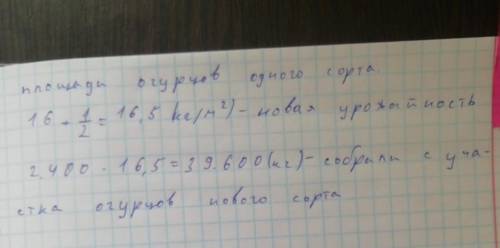 площади огурцов одного сорта.
16 + 1/2 = 16,5 (кг/м²) - новая урожайность
2.400 · 16,5 = 39.600 (кг) - собрали с уча-
стка огурцов нового сорта